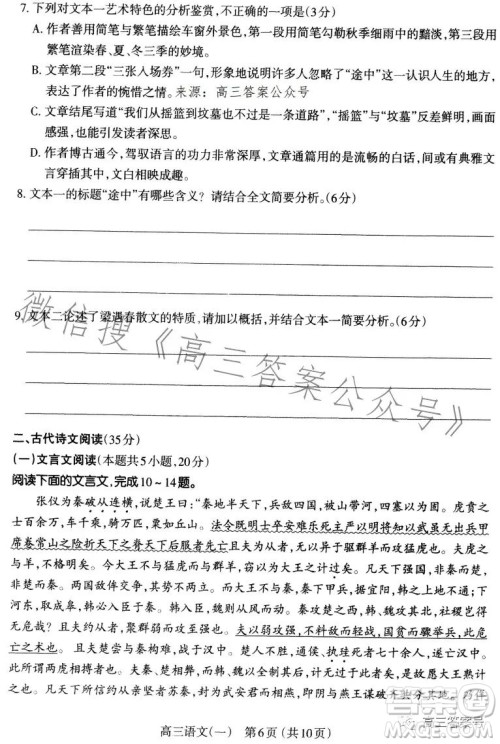 7. 下列对文本一艺术特色的分析鉴赏,不正确的一项是(3分)
A. 作者善用简笔与繁笔描绘车窗外景色,第一段用简笔勾勒秋季细雨中的黯淡,第三段用
繁笔渲染春、夏、冬三季的妙境。
B. 文章第二段“三张入场券”一句,形象地说明许多人忽略了“途中”这一认识人生的地方,
表达了作者的惋惜之情。来源:高三答案公众号
C. 文章结尾写道“我们从摇篮到坟墓也不过是一条道路”,“摇篮”与“坟墓”反差鲜明,画面
感强,也能引发读者深思。
D. 作者博古通今,驾驭语言的功力非常深厚,文章通篇用的是流畅的白话,间有典雅的文
言穿插其中,文白相映成趣。
8. 文本一的标题“途中”有哪些含义?请结合全文简要分析。(6分)
9. 文本二论述了梁遇春散文的特质、请加以概括,并结合文本一简要分析。(6分)
微信搜《高三答案公众号》
二、古代诗文阅读(35分)
(一)文言文阅读(本题共5小题,20分)
阅读下面的文言文,完成10~14题。
张仪为秦破从连横,说楚王曰:“秦地半天下,兵敌四国,被山带河,四塞以为固。虎贲之
士百余万,车千乘,骑万匹,粟如丘山。法令既明士卒安难乐死主严以明将知以武虽无出兵甲
席卷常山之险折天下之脊天下后服者先亡且夫为从者,无以异于驱群羊而攻猛虎也。夫虎之
与羊,不格明矣。今大王不与猛虎而与群羊,窃以为大王之计过矣。凡天下强国,非秦而楚,
非楚而秦。两国敌侔交争,其势不两立。而大王不与秦,秦下甲兵,据宜阳,韩之上地不通;下
河东,取成皋,韩必入臣于秦。韩入臣,魏则从风而动。秦攻楚之西,韩、魏攻其北,社稷岂得
无危哉? 且夫约从者,聚群弱而攻至强也。夫以弱攻强,不料敌而轻战,国贫而骤举兵,此危
亡之术也。 且夫秦之所以不出甲于函谷关十五年以攻诸侯者,阴谋有吞天下之心也。楚尝
与秦构难,战于汉中。楚人不胜,通侯、执珪死者七十余人,遂亡汉中。楚王大怒,兴师袭秦,
此所谓两虎相搏者也。凡天下所信约从亲坚者苏秦,封为武安君而相燕,即阴与燕王谋破齐共分其地。
高三语文(一) 第6页(共10页)
高三答案号